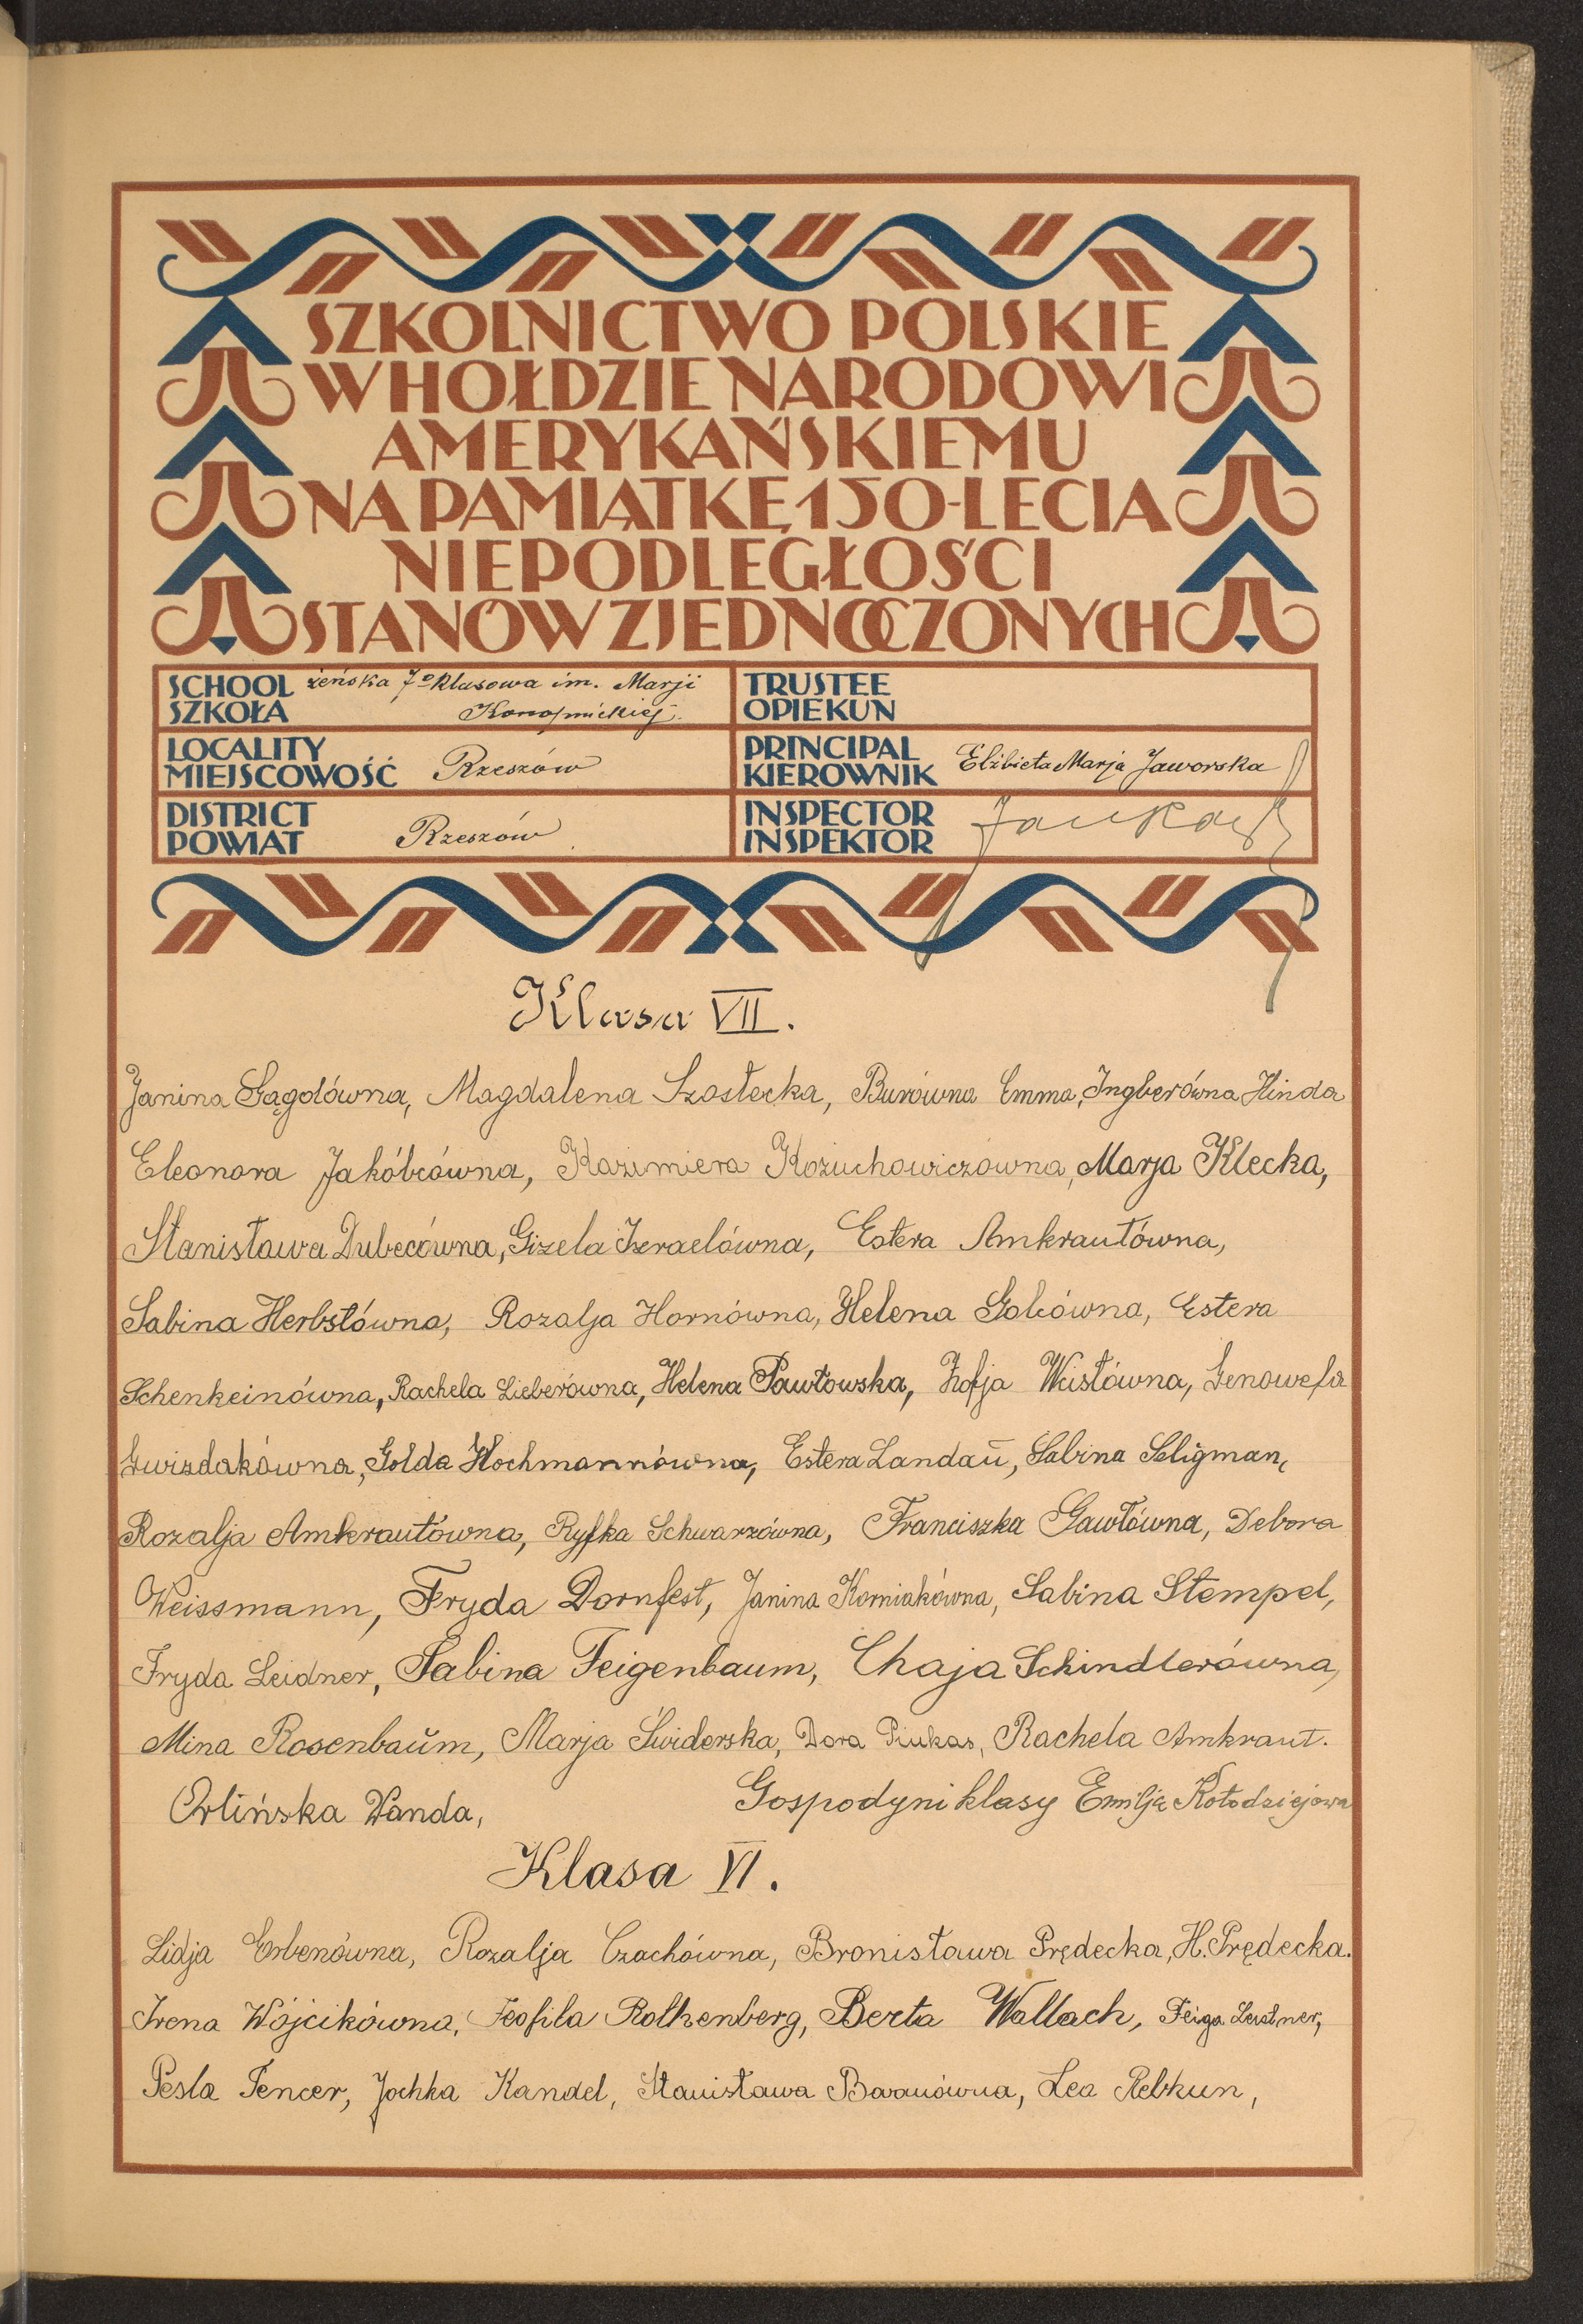 SZKOLNICTWO POLSKIE
W HOŁDZIE NARODOWI
AMERYKAŃSKIEMU
NA PAMIĄTKĘ 150-LECIA
NIEPODLEGŁOŚCI
STANÓW ZJEDNOCZONYCH
SCHOOL żeńska 7o klasowa im. Marji
SZKOŁA Konopnickiej.
TRUSTEE
OPIEKUN
LOCALITY
MIEJSCOWOŚĆ Rzeszów
PRINCIPAL
KIEROWNIK Elżbieta Marja Jaworska
DISTRICT
POWIAT Rzeszów
INSPECTOR
INSPEKTOR
Klasa VII.
Janina Gągolówna, Magdalena Szostecka, Burówna Emma, Ingberówna Hinda
Eleonora Jakóbcówna, Kazimiera Kożuchowiczówna, Marja Klecka,
Stanisława Dubecówna, Gizela Izraelówna, Estera Amkrautówna,
Sabina Herbstówna, Rozalja Hornówna, Helena Golcówna, Estera
Schenkeinówna, Rachela Lieberówna, Helena Pawłowska, Zofja Weistówna, Genowefa
Gwizdakówna, Golda Hochmannówna, Estera Landaū, Sabina Seligman,
Rozalja Amkrautówna, Ryfka Schwarzówna, Franciszka Gawłówna, Debora
Weissmann, Fryda Dornfest, Janina Korniakówna, Sabina Stempel,
Fryda Leidner, Sabina Feigenbaum, Chaja Schindlerówna,
Mina Rosenbaŭm, Marja Świderska, Dora Pinkas, Rachela Amkraut.
Orlińska Wanda, Gospodyni klasy Emilja Kołodziejowa
Klasa VI.
Lidja Erbenówna, Rozalja Czachówna, Bronisława Prędecka, H. Prędecka.
Irena Wójcikówna, Teofila Rothenberg, Berta Wallach, Feiga Leistner,
Pesla Fencer, Jochka Kandel, Stanisława Baranówna, Lea Rebkun,